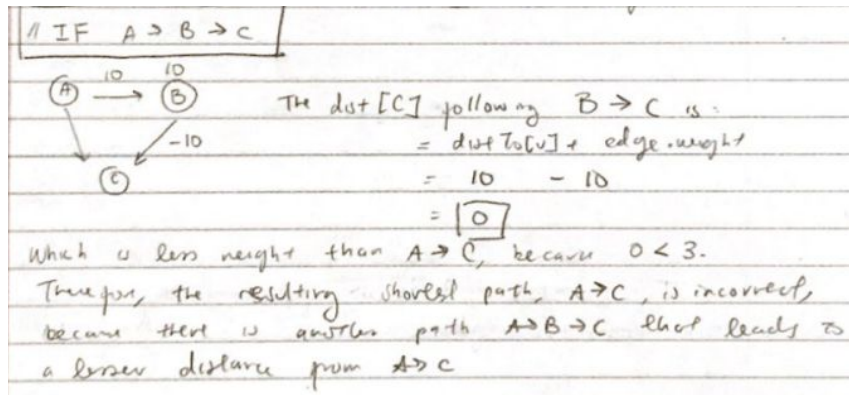 // IF A → B → C
10 10
A → B
The dist [C] following B → C is:
-10
= distTo[v] + edge.weight
C
= 10 - 10
= 0
Which is less weight than A → C, because 0 < 3.
Therefore, the resulting shortest path, A → C, is incorrect,
because there is another path A → B → C that leads to
a lesser distance from A → C